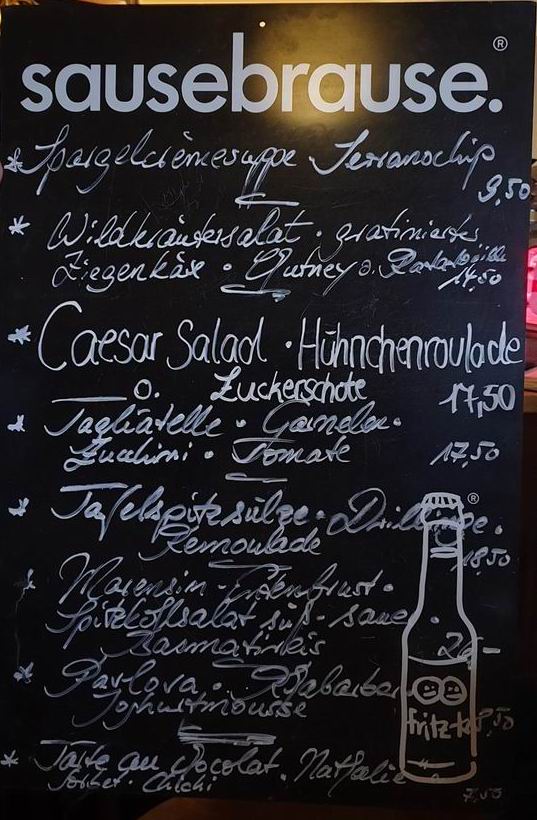 sausebrause.®
* Spargelcrèmesuppe · Serranochip
9,50
* Wildkräutersalat · gratinierter
Ziegenkäse · Chutney
14,50
* Caesar Salad · Hühnchenroulade
o. Zuckerschote 17,50
* Tagliatelle · Garnelen ·
Zucchini · Tomate 17,50
* Tafelspitzsülze · Drillinge ·
Remoulade
18,50
Entenbrust ·
Spitzkohlsalat süß-sauer ·
Basmatireis
* Pavlova · Rhabarber
Joghurtmousse
fritz-k
* Tarte au Chocolat ·
Sorbet ·
7,50
®